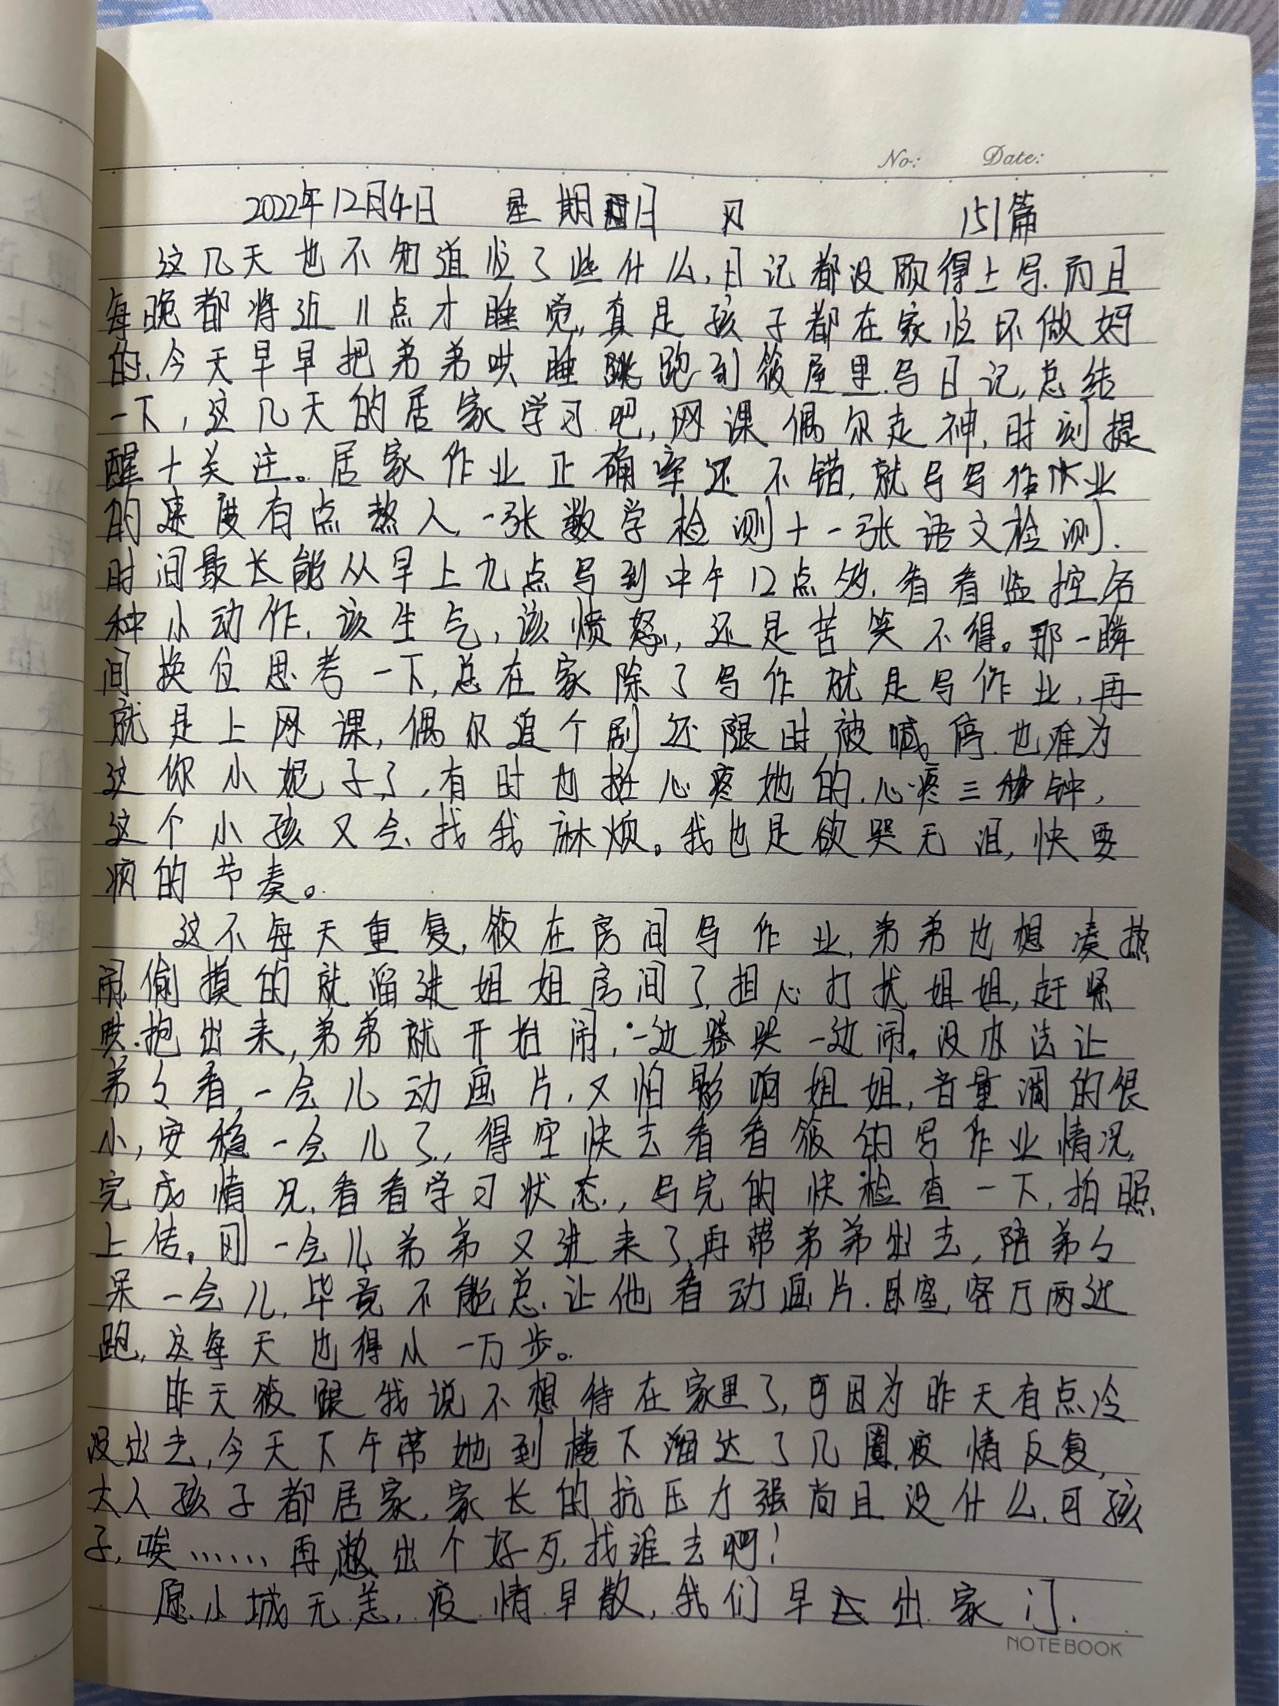 No: Date:
2022年12月4日 星期日 151篇
这几天也不知道忙了些什么,日记都没顾得上写.而且
每晚都将近11点才睡觉,真是孩子都在家忙坏做妈
的.今天早早把弟弟哄睡跑到筱屋里写日记,总结
一下,这几天的居家学习吧,网课偶尔走神,时刻提
醒+关注。居家作业正确率还不错,就写写作业
的速度有点熬人.一张数学检测+一张语文检测.
时间最长能从早上九点写到中午12点多.看看监控各
种小动作,该生气,该愤怒,还是苦笑不得。那一瞬
间换位思考一下,总在家除了写作就是写作业,再
就是上网课,偶尔追个剧还限时被喊停.也难为
这你小妮子了,有时也挺心疼她的.心疼三秒钟,
这个小孩又会找我麻烦。我也是欲哭无泪,快要
疯的节奏。
这不每天重复,筱在房间写作业.弟弟也想凑热
闹,偷摸的就溜进姐姐房间了,担心打扰姐姐,赶紧
哄.抱出来,弟弟就开始闹,一边哭一边闹。没办法让
弟々看一会儿动画片.又怕影响姐姐,音量调的很
小,安稳一会儿了,得空快去看看筱的写作业情况,
完成情况.看看学习状态,写完的快检查一下,拍照
上传。刚一会儿弟弟又进来了,再带弟弟出去,陪弟々
呆一会儿.毕竟不能总让他看动画片.卧室,客厅两边
跑,这每天也得小一万步。
昨天筱跟我说不想待在家里了,可因为昨天有点冷
没出去,今天下午带她到楼下溜达了几圈.疫情反复,
大人孩子都居家,家长的抗压力强尚且没什么,可孩
子,唉……再憋出个好歹,找谁去啊!
愿小城无恙,疫情早散,我们早出家门.
NOTEBOOK